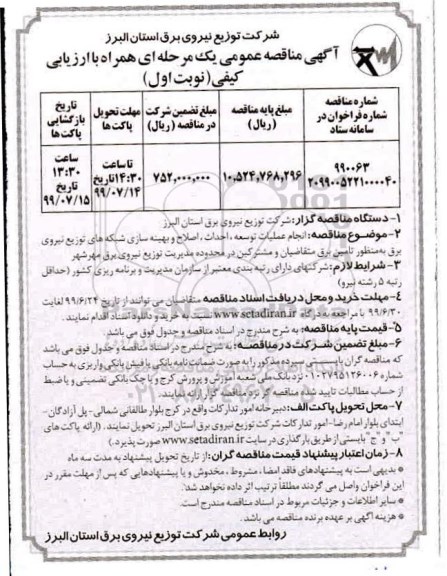 شرکت توزیع نیروی برق استان البرز
آگهی مناقصه عمومی یک مرحله ای همراه با ارزیابی
کیفی (نوبت اول)
شماره مناقصه شماره فراخوان در سامانه ستاد
مبلغ پایه مناقصه (ریال)
مبلغ تضمین شرکت در مناقصه (ریال)
مهلت تحویل پاکت ها
تاریخ بازگشایی پاکت ها
۹۹۰۰۶۳
۲۰۹۹۰۰۵۲۲۱۰۰۰۰۴۰
۱۰,۵۲۴,۷۶۸,۲۹۶
۷۵۲,۰۰۰,۰۰۰
تا ساعت ۱۴:۳۰ تاریخ ۹۹/۰۷/۱۴
ساعت ۱۳:۳۰ تاریخ ۹۹/۰۷/۱۵
۱- دستگاه مناقصه گزار: شرکت توزیع نیروی برق استان البرز
۲- موضوع مناقصه: انجام عملیات توسعه، احداث، اصلاح و بهینه سازی شبکه های توزیع نیروی
برق به منظور تامین برق متقاضیان و مشترکین در محدوده مدیریت توزیع برق مهرشهر
۳- شرایط لازم: شرکتهای دارای رتبه بندی معتبر از سازمان مدیریت و برنامه ریزی کشور (حداقل
رتبه ۵ رشته نیرو)
۴- مهلت خرید و محل دریافت اسناد مناقصه متقاضیان می توانند از تاریخ ۹۹/۶/۲۴ لغایت
۹۹/۶/۳۰ با مراجعه به درگاه www.setadiran.ir نسبت به خرید و دانلود اسناد اقدام نمایند.
۵- قیمت پایه مناقصه: به شرح مندرج در اسناد مناقصه و جدول فوق می باشد.
۶- مبلغ تضمین شرکت در مناقصه: به شرح مندرج در اسناد مناقصه و جدول فوق می باشد
که مناقصه گران بایستی سپرده مذکور را به صورت ضمانت نامه بانکی یا فیش بانکی واریزی به حساب
شماره ۰۱۰۲۷۹۵۱۲۶۰۰۶ نزد بانک ملی شعبه آموزش و پرورش کرج و یا چک بانکی تضمینی و یا ضبط
از حساب مطالبات تایید شده مناقصه گر نزد مناقصه گزار ارائه نمایند.
۷- محل تحویل پاکت الف: دبیرخانه امور تدارکات واقع در کرج بلوار طالقانی شمالی- پل آزادگان-
ابتدای بلوار امام رضا- امور تدارکات شرکت توزیع نیروی برق استان البرز تحویل نمایند. (ارائه پاکت های
"ب" و "ج" بایستی از طریق بارگذاری در سایت www.setadiran.ir صورت پذیرد.)
۸- زمان اعتبار پیشنهاد قیمت مناقصه گران: از تاریخ تحویل پیشنهاد به مدت سه ماه
* بدیهی است به پیشنهادهای فاقد امضا، مشروط، مخدوش و یا پیشنهادهایی که پس از مهلت مقرر در
این فراخوان واصل می گردند مطلقاً ترتیب اثر داده نخواهد شد.
* سایر اطلاعات و جزئیات مربوط در اسناد مناقصه مندرج است.
* هزینه آگهی بر عهده برنده مناقصه می باشد.
روابط عمومی شرکت توزیع نیروی برق استان البرز